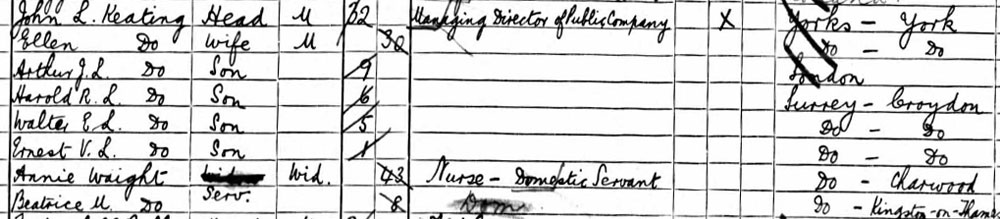 John L. Keating Head M 32 Managing Director of Public Company X Yorks - York
Ellen Do Wife M 30 Do - Do
Arthur J. L. Do Son 9 London
Harold R. L. Do Son 6 Surrey - Croydon
Walter E. L. Do Son 5 Do - Do
Ernest V. L. Do Son 1 Do - Do
Annie Waight Serv. Wid. 43 Nurse - Domestic Servant Do - Charwood
Beatrice M. Do 8 Dom Do - Kingston-on-Tham